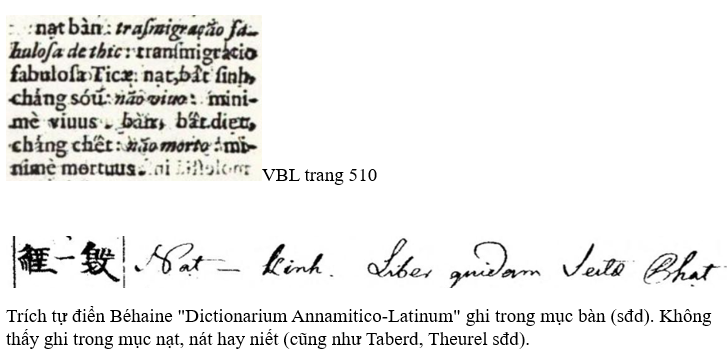 nạt bàn: traſmigração fa-
buloſa de thic: tranſmigratio
fabuloſa Ticæ: nạt, bất ſinh,
chảng sóũ: não viuo: mini-
mè viuus. bàn, bất diẹt,
chảng chết: não morto: mi-
nimè mortuus.
VBL trang 510
經一毀 Nạt – Kinh. Liber quidam Sectæ Phạt
Trích tự điển Béhaine "Dictionarium Annamitico-Latinum" ghi trong mục bàn (sđd). Không
thấy ghi trong mục nạt, nát hay niết (cũng như Taberd, Theurel sđd).